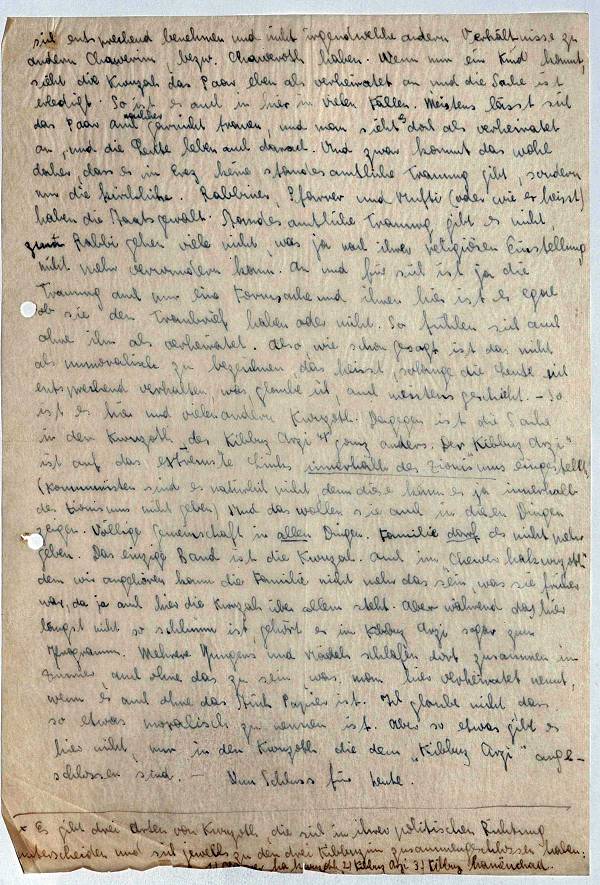 sich entsprechend benehmen und nicht irgendwelche andern Verhältnisse zu
andern Chawerim bezw. Chaweroth haben. Wenn nun ein Kind kommt,
sieht die Kwuzah das Paar eben als verheiratet an und die Sache ist
erledigt. So ist es auch in hier in vielen Fällen. Meistens lässt sich
das Paar auch garnicht trauen, und man sieht's dort als verheiratet
an, und die Leute leben auch danach. Und zwar kommt das wohl
daher, dass es in Erez keine standesamtliche Trauung gibt, sondern
nur die kirchliche. Rabbiner, Pfarrer und Mufti (oder wie er heisst)
haben die Staatsgewalt. Standesamtliche Trauung gibt es nicht,
zum Rabbi gehen viele nicht, was ja nach ihrer religiösen Einstellung
nicht mehr verwundern kann. An und für sich ist ja die
Trauung auch nur eine Formsache und ihnen hier ist es egal
ob sie den Traubrief haben oder nicht. So fühlen sich auch
ohne ihn als verheiratet. Also, wie schon gesagt ist das nicht
als unmoralisch zu bezeichnen, das heisst, solange die Leute sich
entsprechend verhalten, was, glaube ich, auch meistens geschieht. – So
ist es hier und vielen andern Kwuzoth. Dagegen ist die Sache
in den Kwuzoth des Kibbuz Arzi ganz anders. Der "Kibbuz Arzi"
ist auf das extremste links innerhalb des Zionismus eingestellt
(Kommunisten sind es natürlich nicht, denn diese kann es ja innerhalb
des Zionismus nicht geben) Und das wollen sie auch in diesen Dingen
zeigen. Völlige Gemeinschaft in allen Dingen. Familie darf es nicht mehr
geben. Das einzige Band ist die Kwuzah. Auch im Chewer hakwuzoth
dem wir angehören kann die Familie nicht mehr das sein, was sie früher
war, da ja auch hier die Kwuzah über allem steht. Aber während das hier
längst nicht so schlimm ist, gehört es im Kibbuz Arzi sogar zum
Programm. Mehrere Jungens und Mädels schlafen dort zusammen im
Zimmer, auch ohne das zu sein was man hier verheiratet nennt,
wenn es auch ohne das Stück Papier ist. Ich glaube nicht dass
so etwas moralisch zu nennen ist. Aber so etwas gibt es
hier nicht, nur in den Kwuzoth die dem "Kibbuz Arzi" ange-
schlossen sind. – Nun Schluss für heute.
* Es gibt drei Arten von Kwuzoth, die sich in ihrer politischen Richtung
unterscheiden und sich jeweils zu den drei Kibbuzim zusammengeschlossen haben:
ha kwuzoth 2) Kibbuz Arzi 3) Kibbuz hameuchad.